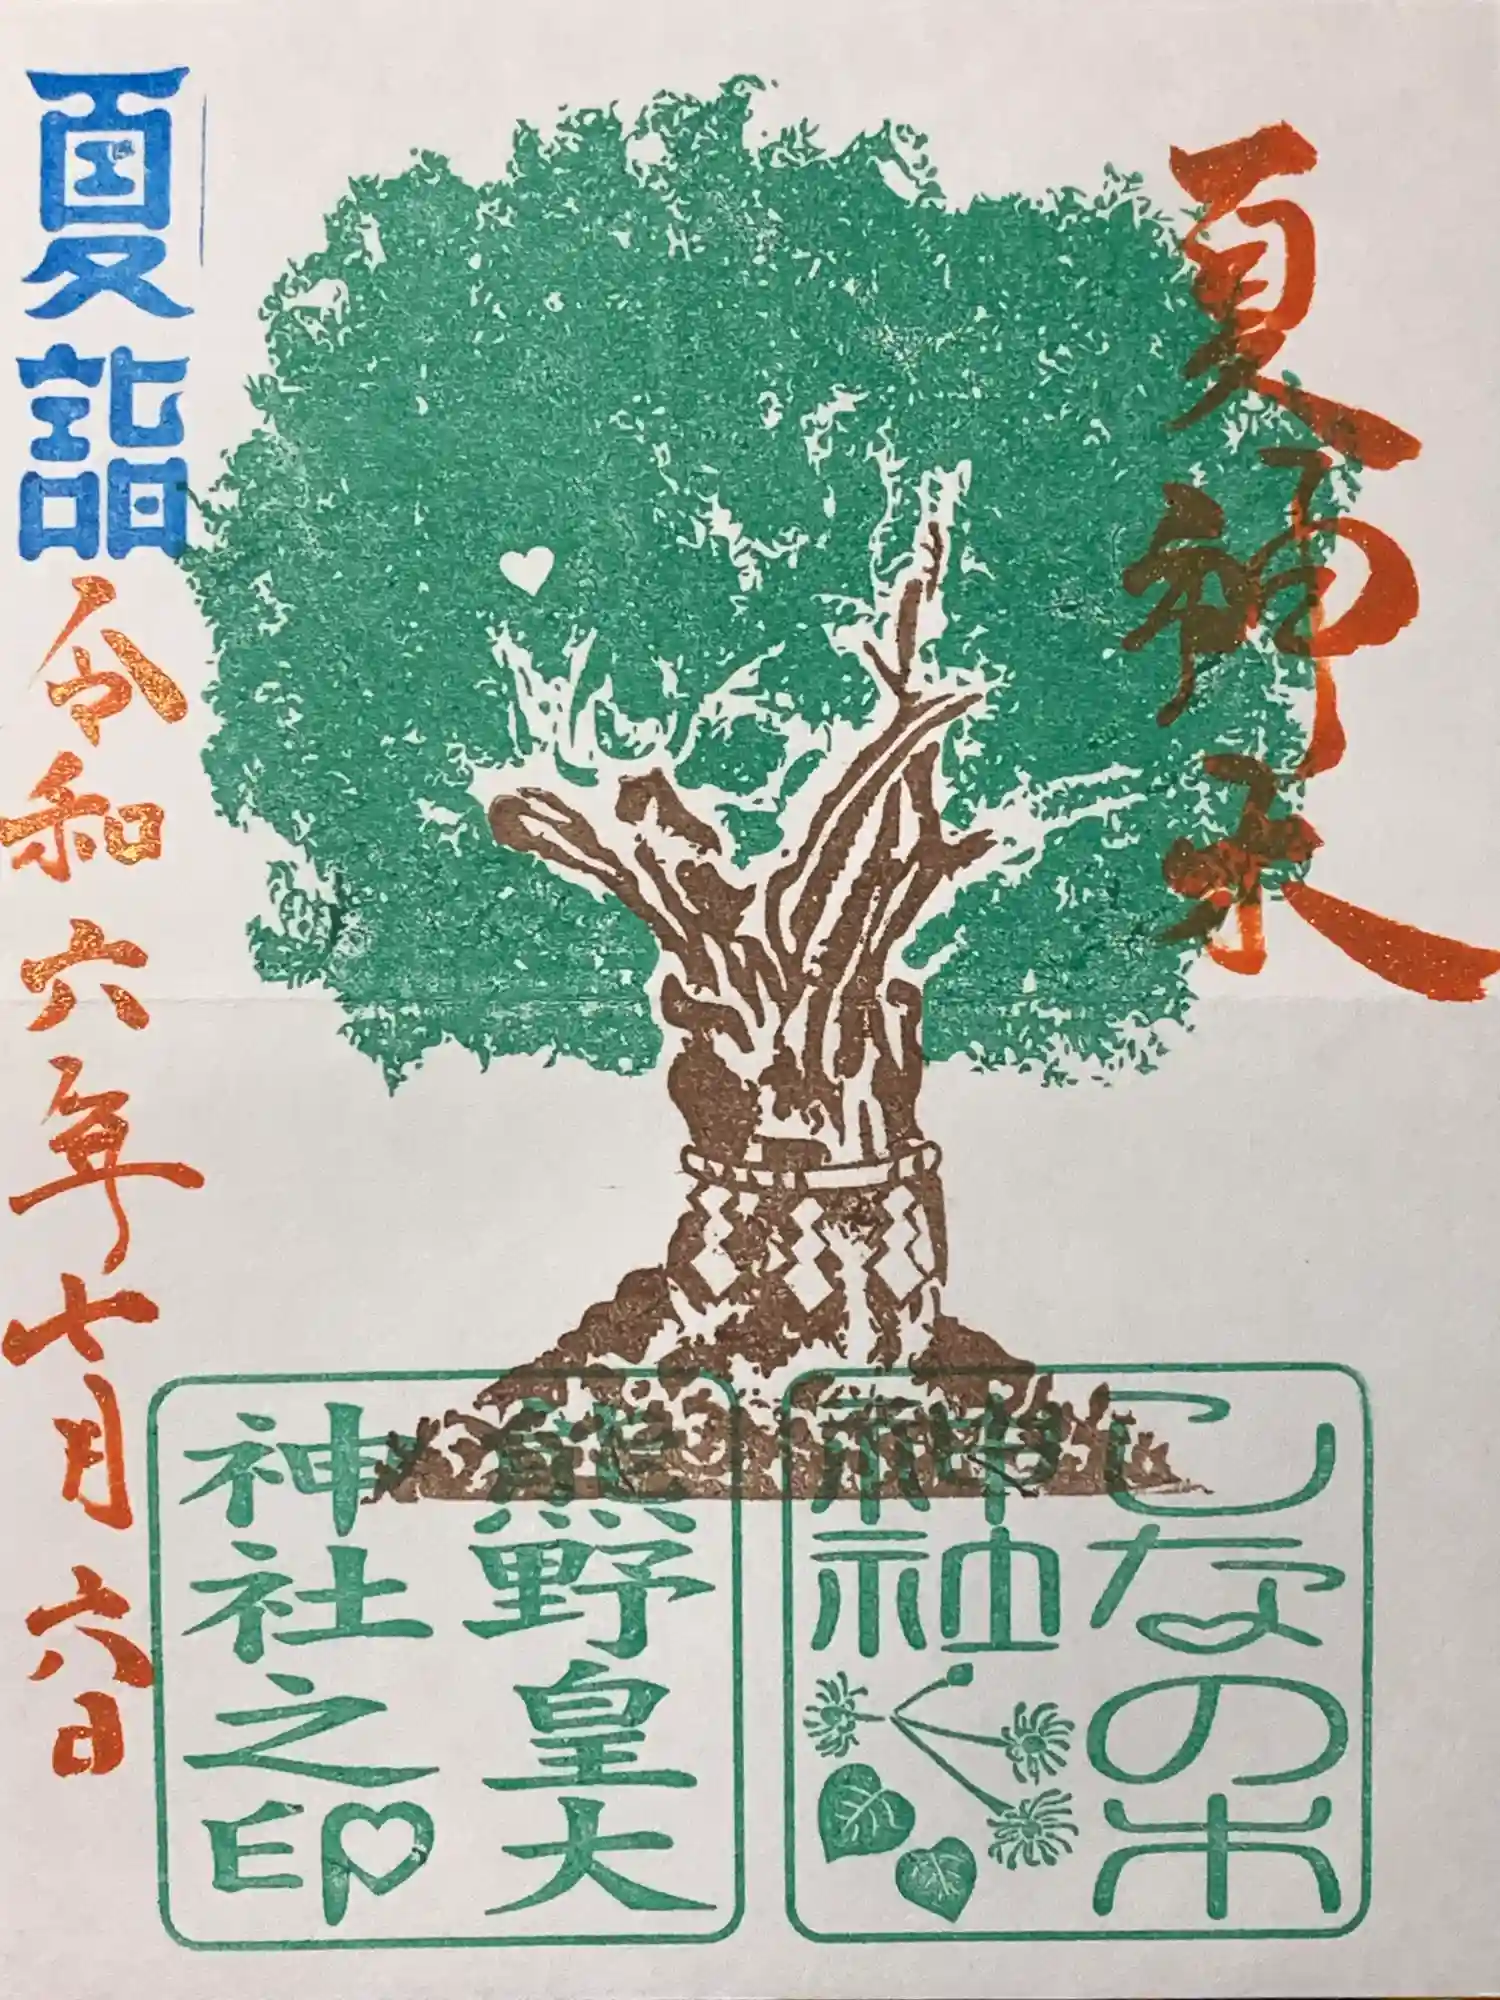 夏神木
しなの木
神社
熊野皇大
神社之印
夏詣
令和六年七月六日